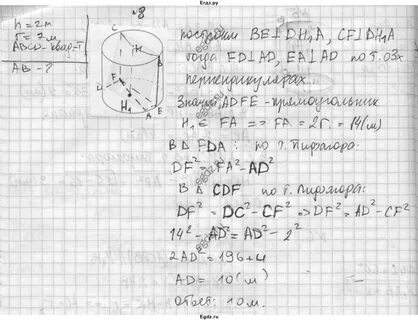 Egdz.ru
№8
h = 2м
r = 7м
ABCD-квад-т
AB - ?
C
B
h
D
F
E
H₁
A
построим BE⊥DH₁A, CF⊥DH₁A
тогда FD⊥AD, EA⊥AD по т.о 3х
перпендикулярах..
Значит ADFE - прямоугольник
H₁ ∈ FA => FA = 2r = 14(м)
В Δ FDA : по т. Пифагора:
DF² = FA² - AD²
В Δ CDF по т. Пифагора:
DF² = DC² - CF² => DF² = AD² - CF²
14² - AD² = AD² - 2²
2AD² = 196 + 4
AD = 10 (м)
ответ: 10 м.
Egdz.ru